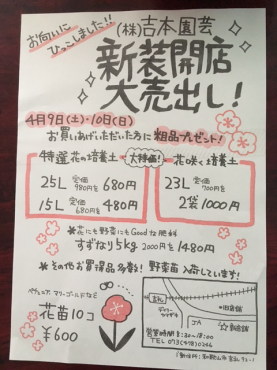 お向いに
ひっこしました!!
(株)吉本園芸
新装開店
大売出し!
4月9日(土)・10日(日)
お買いあげいただいた方に粗品プレゼント!
特選花の培養土
大特価!
花咲く培養土
25L 定価980円を 680円
15L 定価680円を 480円
23L 定価700円を
2袋1000円
*花にも野菜にもGoodな肥料
すずなり5kg 2000円を1480円
*その他お買得品多数! 野菜苗入荷しています!
ペチュニア、マリーゴールドなど
花苗10コ
¥600
旧店舗
JA
☆新店舗
営業時間 8:30~18:00